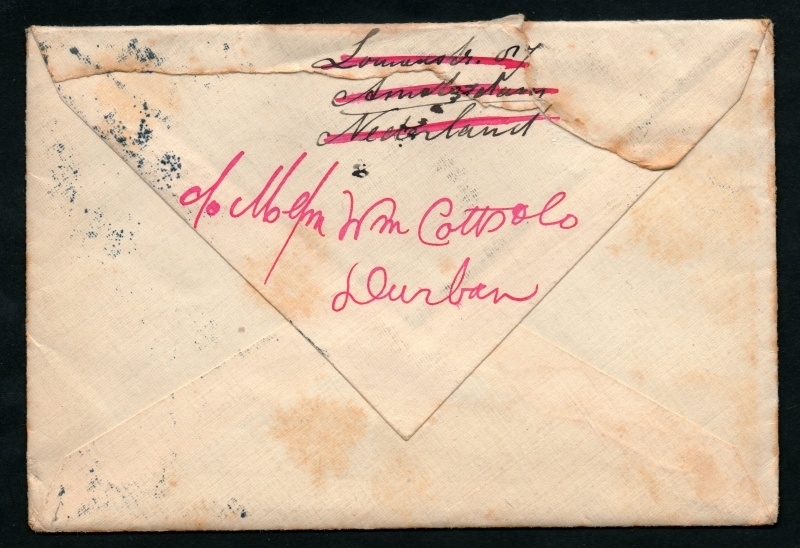 Lomanstr. 87
Amsterdam
Nederland
c/o Wm Cotts & Co
Durban